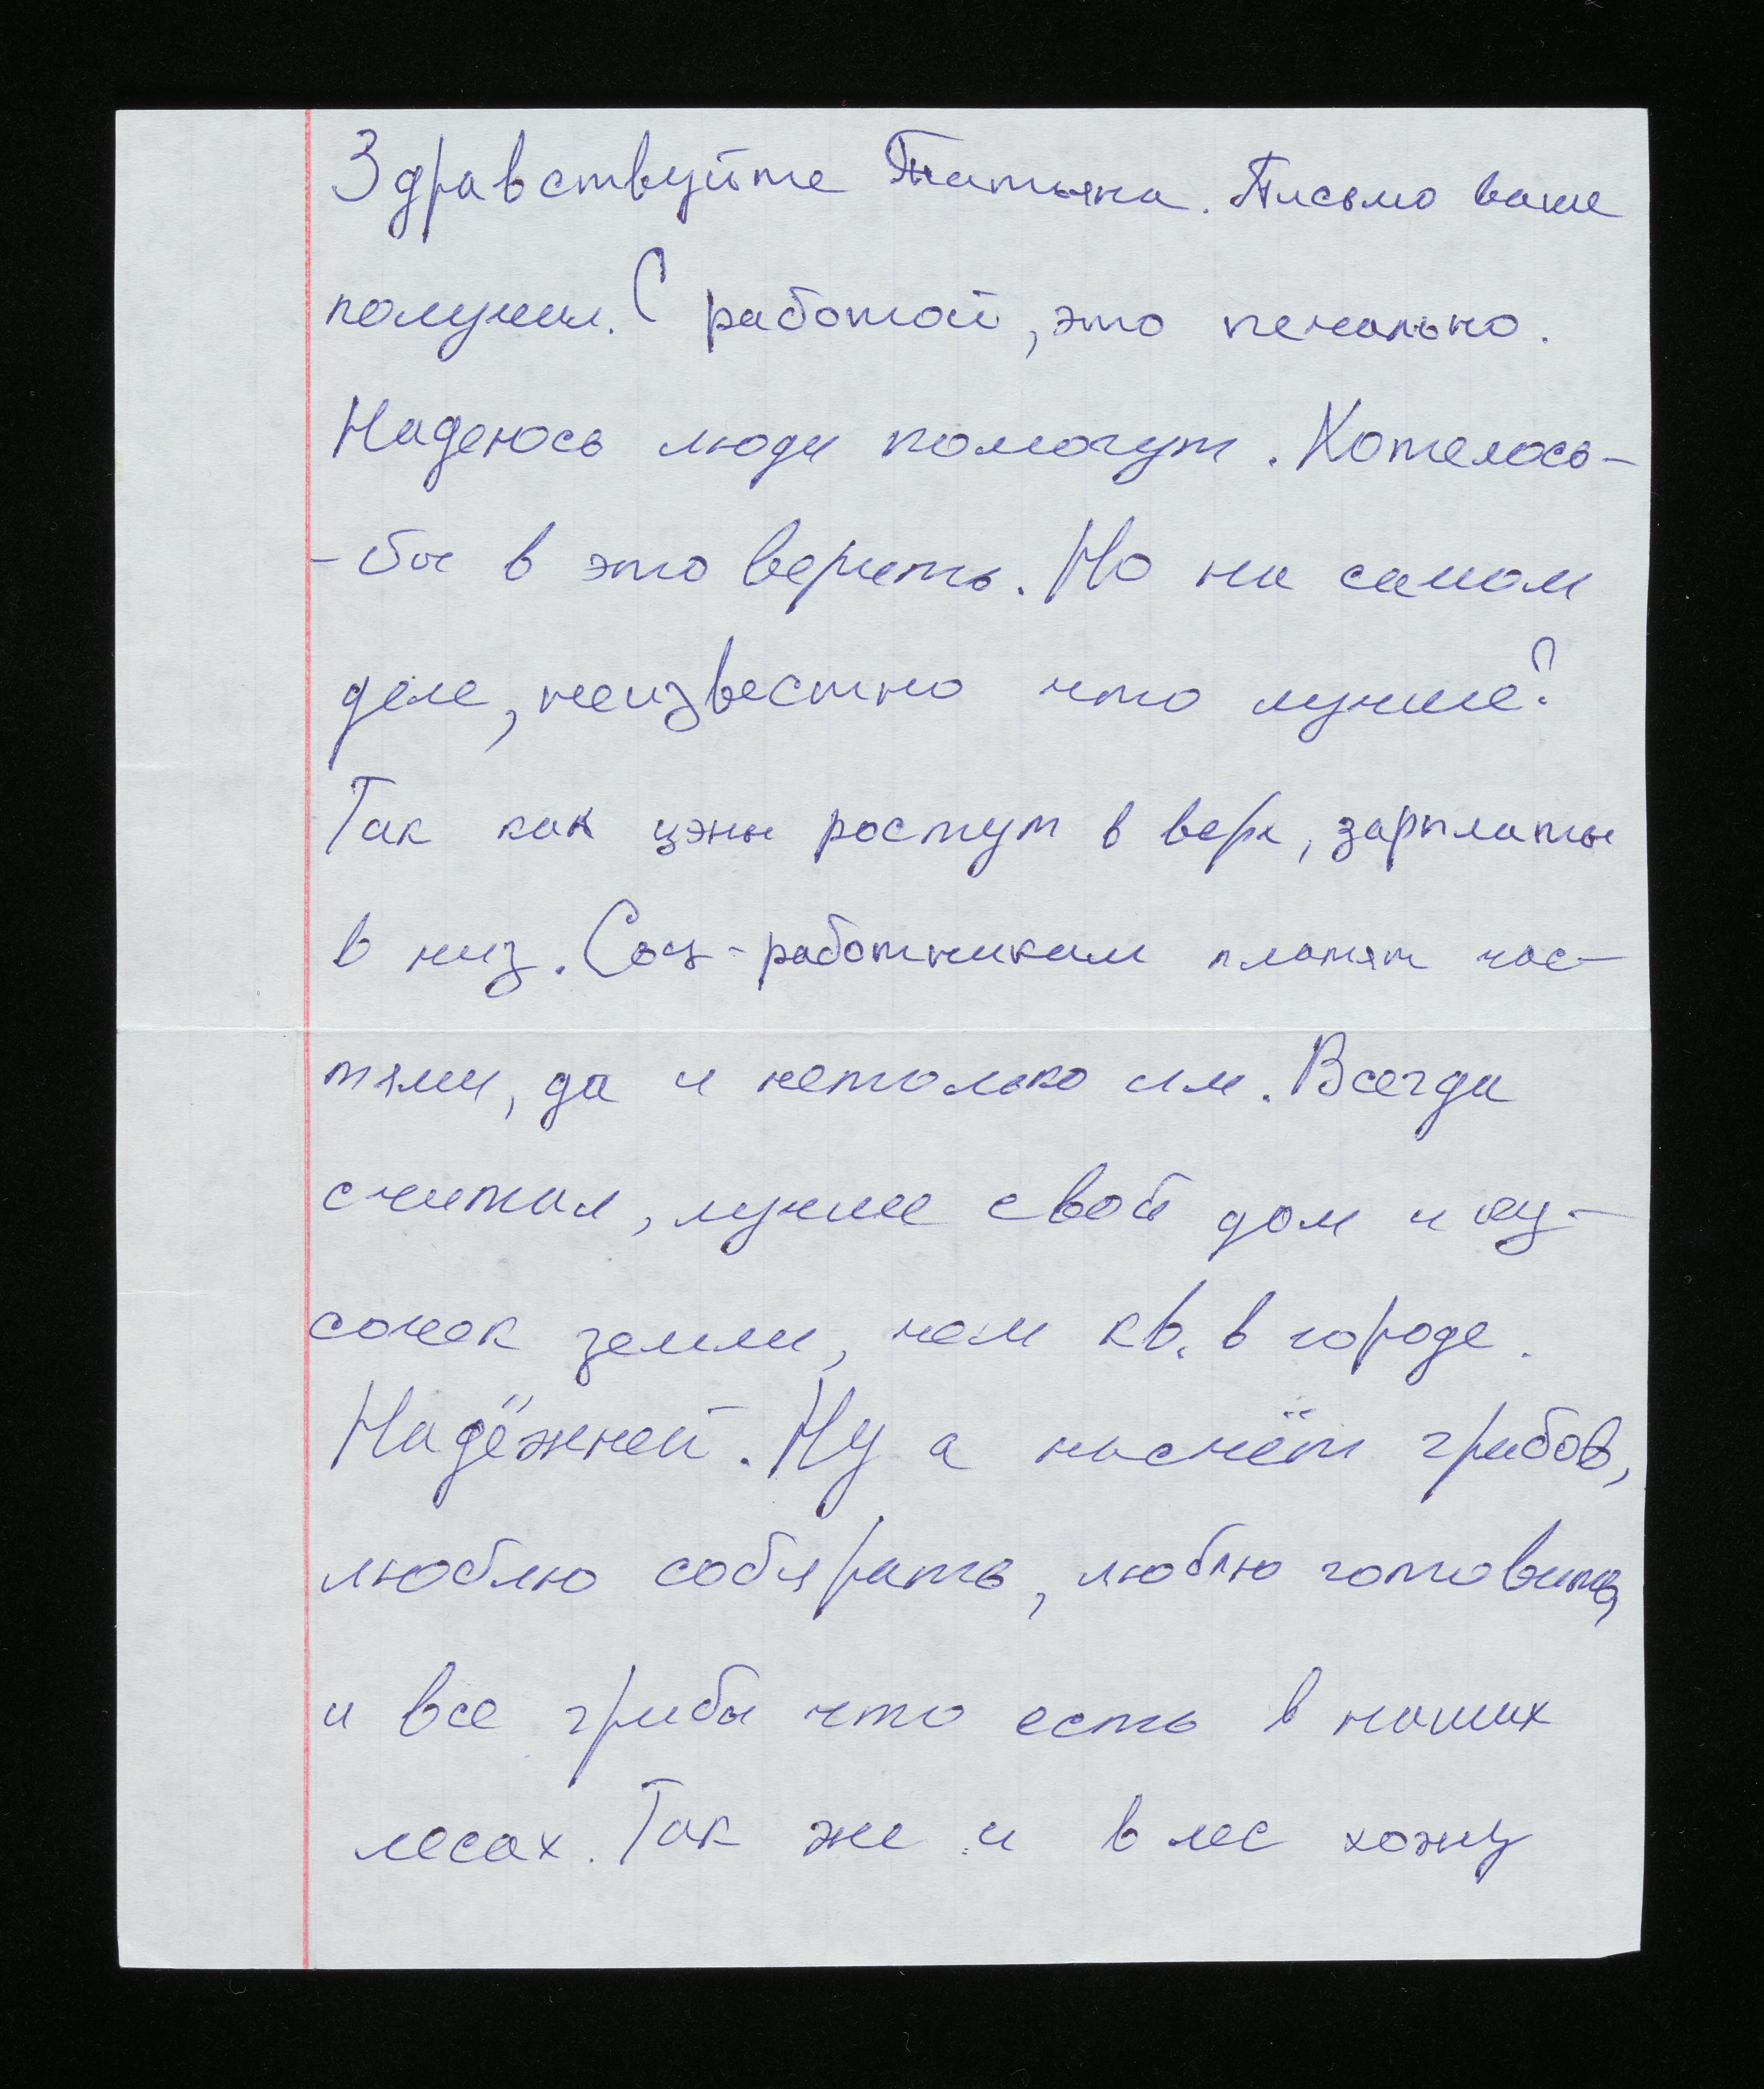 Здравствуйте Татьяна. Письмо ваше
получил. С работой, это печально.
Надеюсь люди помогут. Хотелось-
-бы в это верить. Но на самом
деле, неизвестно что лучше?
Так как цэны ростут в верх, зарплаты
в низ. Соц-работникам платят час-
тями, да и нетолько им. Всегда
считал, лучше свой дом и ку-
сочек земли, чем кв. в городе.
Надёжней. Ну а насчёт грибов,
люблю собирать, люблю готовить,
и все грибы что есть в наших
лесах. Так же и в лес хожу